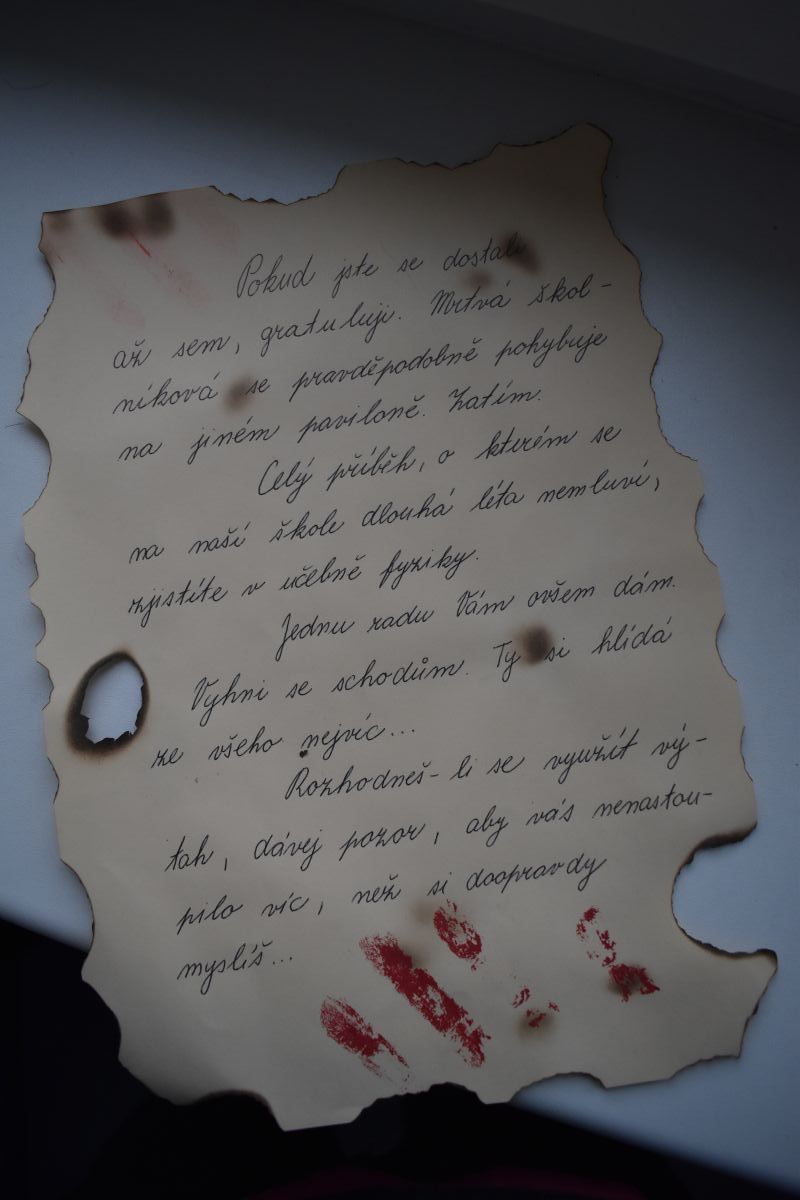 Pokud jste se dostali
až sem, gratuluji. Mrtvá škol-
níková se pravděpodobně pohybuje
na jiném paviloně. Zatím.
Celý příběh, o kterém se
na naší škole dlouhá léta nemluví,
zjistíte v učebně fyziky.
Jednu radu Vám ovšem dám.
Vyhni se schodům. Ty si hlídá
ze všeho nejvíc...
Rozhodneš-li se využít vý-
tah, dávej pozor, aby vás nenastou-
pilo víc, než si doopravdy
myslíš...